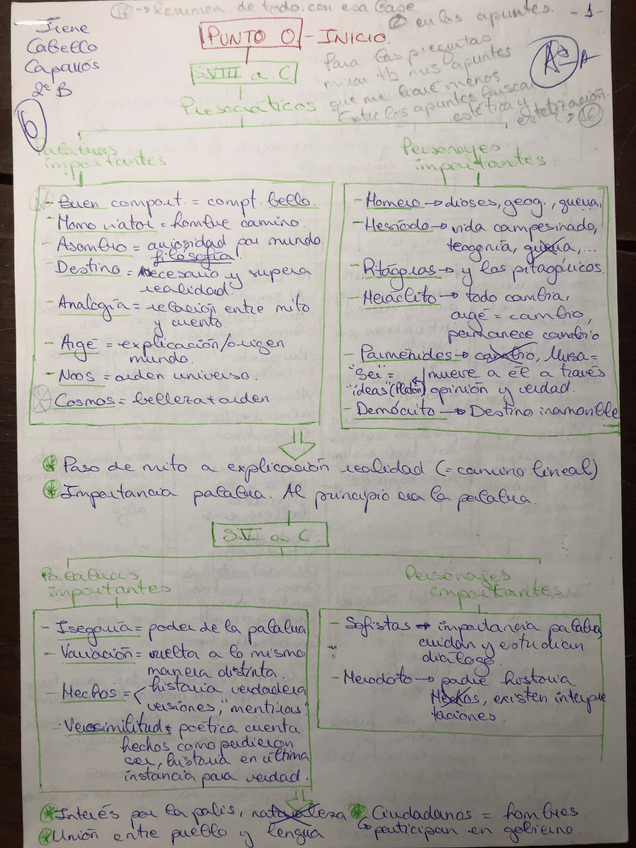 → Resumen de todo con esa base
en los apuntes.
- 1 -
Irene
Cabello
Caparrós
2º B
PUNTO 0 - INICIO.
Para las preguntas
mirar tb mis apuntes
que me llevé menos
Entre los apuntes buscar
estética y
S.VIII a.C
Presocráticos
6
16
Palabras
importantes
Personajes
importantes.
- Buen comport. = compt. bello.
- Homo viator = hombre camino.
- Asombro = curiosidad por mundo
filosofía
- Destino = Necesario y supera
realidad.
- Analogía = relación entre mito
y cuento
- Argé = explicación/origen
mundo.
- Noos = orden universo.
- Cosmos = belleza + orden
- Homero → dioses, geog., guerra.
- Hesíodo → vida campesinado,
teogonía, guerra, ...
- Pitágoras → y los pitagóricos.
- Heráclito → todo cambia,
argé = cambio,
permanece cambio
- Parménides → cambio, Musa =
"Ser" = mueve a él a través
"ideas" (Platón) opinión y verdad.
- Demócrito → Destino inamovible
* Paso de mito a explicación realidad (= camino lineal)
* Importancia palabra. Al principio era la palabra.
S.V a.C.
Palabras
importantes
Personajes
importantes
- Isegoría = poder de la palabra
- Variación = vuelta a lo mismo
manera distinta.
- Hechos = historia verdadera
versiones, "mentiras"
- Verosimilitud = poética cuenta
hechos como pudieron
ser, historia en última
instancia para verdad.
- Sofistas → importancia palabra,
cuidan y estudian
diálogo.
- Herodoto → padre historia
Hechos, existen interpre
taciones.
* Interés por la polis, naturaleza
* Unión entre pueblo y lengua
* Ciudadanos = hombres.
↳ participan en gobierno.